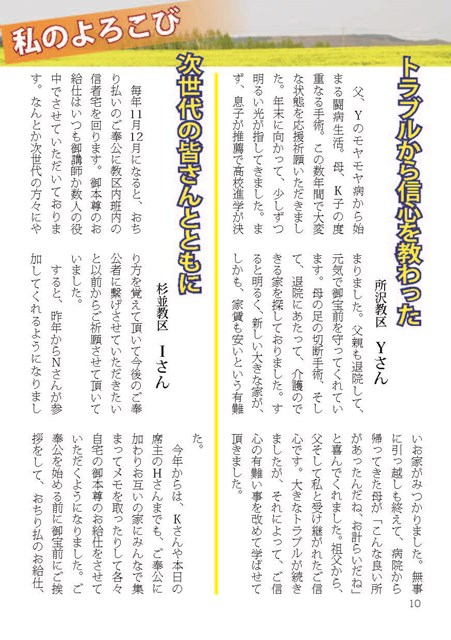 私のよろこび
トラブルから信心を教わった
所沢教区　Yさん
父、Yのモヤモヤ病から始
まる闘病生活。母、K子の度
重なる手術。この数年間で大変
な状態を応援祈願いただきまし
た。年末に向かって、少しずつ
明るい光が指してきました。ま
ず、息子が推薦で高校進学が決
まりました。父親も退院して、
元気で御宝前を守ってくれてい
ます。母の足の切断手術、そし
て、退院にあたって、介護ので
きる家を探しておりました。す
ると明るく、新しい大きな家が、
しかも、家賃も安いという有難
いお家がみつかりました。無事
に引っ越しも終えて、病院から
帰ってきた母が「こんな良い所
があったんだね、お計らいだね」
と喜んでくれました。祖父から、
父そして私と受け継がれたご信
心です。大きなトラブルが続き
ましたが、それによって、ご信
心の有難い事を改めて学ばせて
頂きました。
次世代の皆さんとともに
杉並教区　Iさん
毎年11月12月になると、おち
り払いのご奉公に教区内班内の
信者宅を回ります。御本尊のお
給仕はいつも御講師か数人の役
中でさせていただいておりま
す。なんとか次世代の方々にや
り方を覚えて頂いて今後のご奉
公者に繋げさせていただきたい
と以前からご祈願させて頂いて
いました。
すると、昨年からNさんが参
加してくれるようになりまし
た。
今年からは、Kさんや本日の
席主のHさんまでも、ご奉公に
加わりお互いの家にみんなで集
まってメモを取ったりして各々
自宅の御本尊のお給仕をさせて
いただくようになりました。ご
奉公を始める前に御宝前にご挨
拶をして、おちり払のお給仕、
10